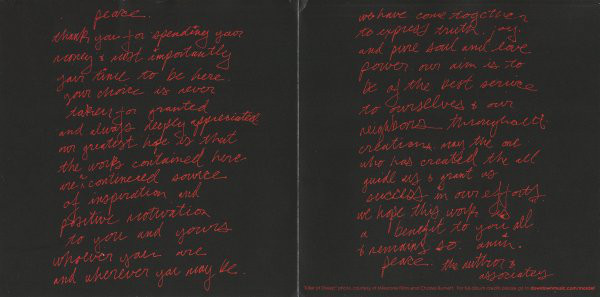 peace.
thank you for spending your
money & most importantly
your time to be here.
your choice is never
taken for granted
and always deeply appreciated
our greatest hope is that
the works contained here
are a continued source
of inspiration and
positive motivation
to you and yours
whoever you are
and wherever you may be.
we have come together
to express truth, joy,
and pure soul and love
power our aim is to
be of the best service
to ourselves & our
neighbors throughout
creations. may the one
who has created the all
guide us & grant us
success in our efforts.
we hope this work is
a benefit to you all
& remains so. amin.
peace. the author &
associates
photo courtesy of Milestone Films and Charles Burnett. For full album credits please go to downtownmusic.com/mosdef